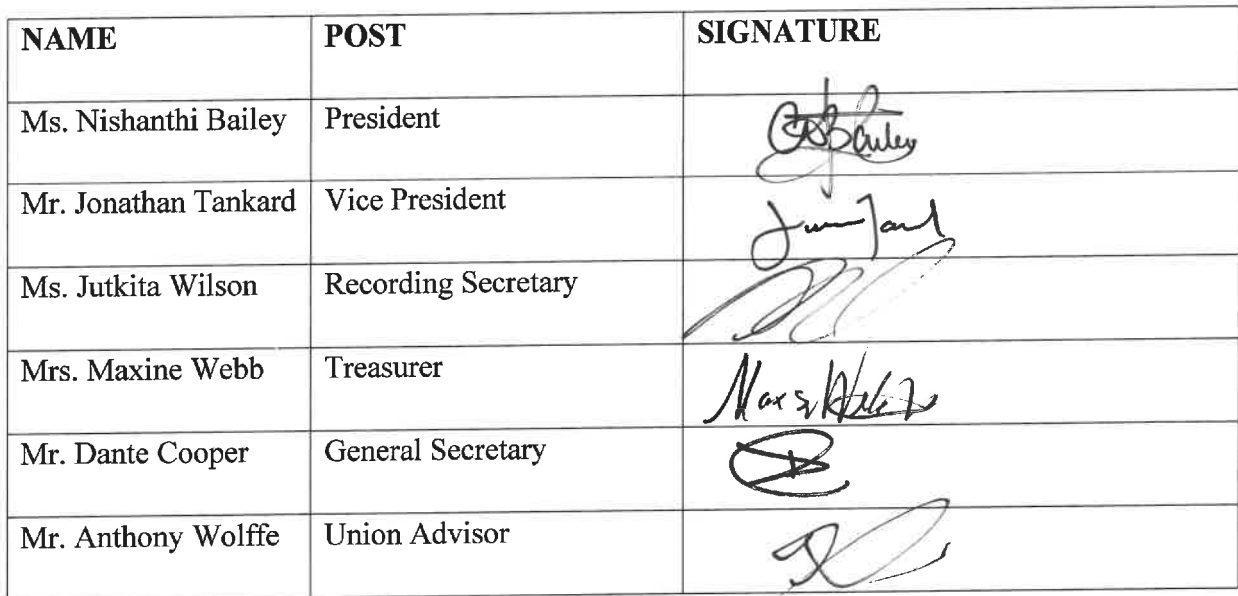 NAME POST SIGNATURE
Ms. Nishanthi Bailey President
Mr. Jonathan Tankard Vice President
Ms. Jutkita Wilson Recording Secretary
Mrs. Maxine Webb Treasurer
Mr. Dante Cooper General Secretary
Mr. Anthony Wolffe Union Advisor